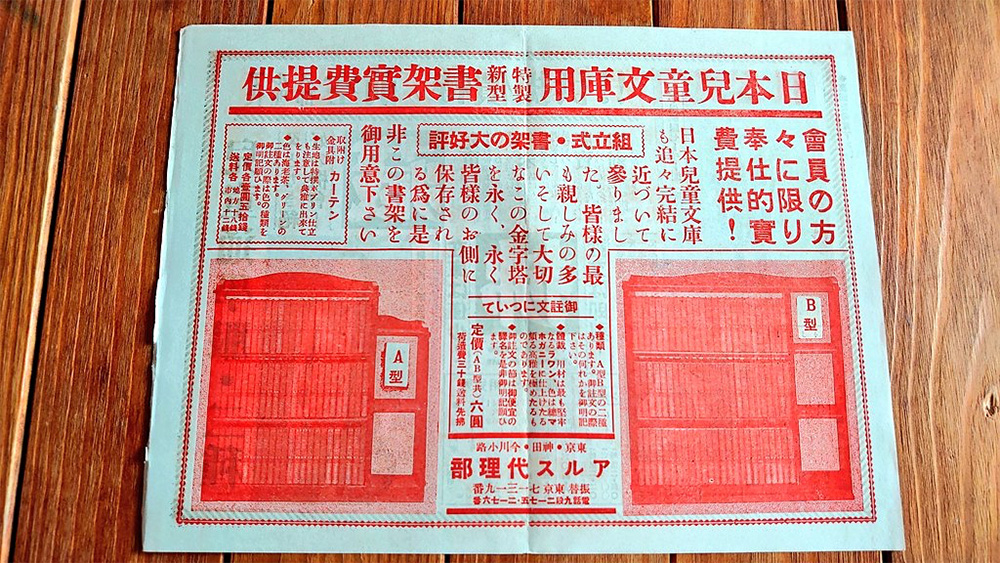 日本兒童文庫用
特製
新型
書架實費提供
會員の方
々に限り
奉仕的實
費提供！
組立式・書架の大好評
日本兒童文庫
も追々完結に
近づいて
參りまし
た。皆様の最
も親しみの多
いそして大切
なこの金字塔
を永く、永く
皆様のお側に
保存され
る爲に是
非この書架を
御用意下さい
取附け
金具附
カーテン
◆生地は特撰ポプリン仕立
も注意して典雅に出來て
をります。
◆色は海老茶、グリーンの
二種あります。
御註文の際は色の種類を
御明記願ひます。
定價各壹圓五拾錢
送料各 地方十八錢
市内十二錢
御註文について
◆種類 A型B型の二種
あります。御註文の際
はその何れかを御明記
下さい。
◆體裁 用材は最も堅牢
なるラワン、色は總マ
ホガニーに仕上げたる
頗る高雅を極めたるも
のであります。
◆御註文の節は御便宜の
驛名を是非御明記願ひ
ます。
定價（AB型共）六圓
荷造費三十錢送料先拂
B型
A型
東京・神田・今川小路
アルス代理部
振替東京七一三一九番
電話九段二一七五・二一七六番